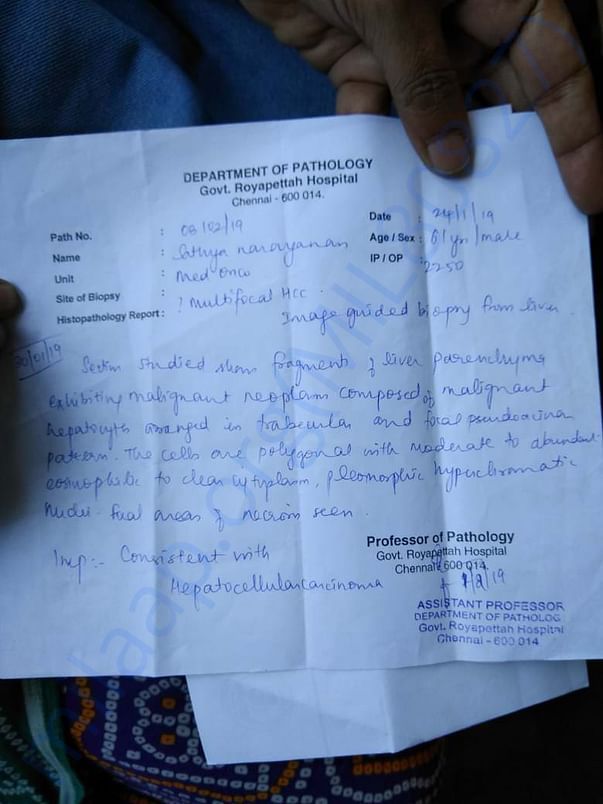 DEPARTMENT OF PATHOLOGY
Govt. Royapettah Hospital
Chennai - 600 014.
Path No. : 08/02/19
Date : 24/1/19
Name : Sathya narayanan
Age / Sex : 61 yrs / male
Unit : Med Onco
IP / OP : 2250
Site of Biopsy : ? Multifocal HCC.
Histopathology Report : Image guided biopsy from liver.
30/01/19
Section studied shows fragments of liver parenchyma
exhibiting malignant neoplasm composed of malignant
hepatocytes arranged in trabecular and focal pseudoacinar
pattern. The cells are polygonal with moderate to abundant
eosinophilic to clear cytoplasm, pleomorphic hyperchromatic
nuclei. Focal areas of necrosis seen.
Imp:- Consistent with
Hepatocellular carcinoma
Professor of Pathology
Govt. Royapettah Hospital
Chennai 600 014.
1/2/19
ASSISTANT PROFESSOR
DEPARTMENT OF PATHOLOG
Govt. Royapettah Hospital
Chennai - 600 014